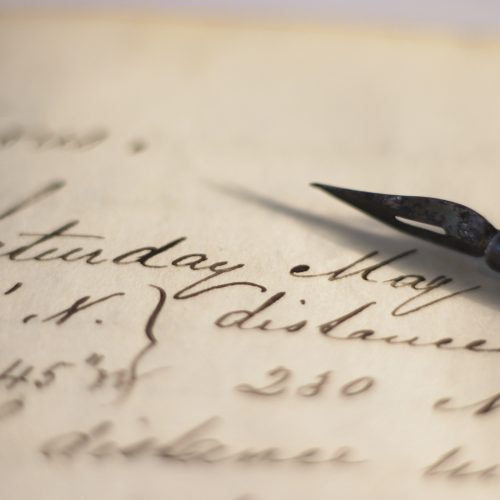 Saturday May
' . N. } distance
45" W } 230
distance